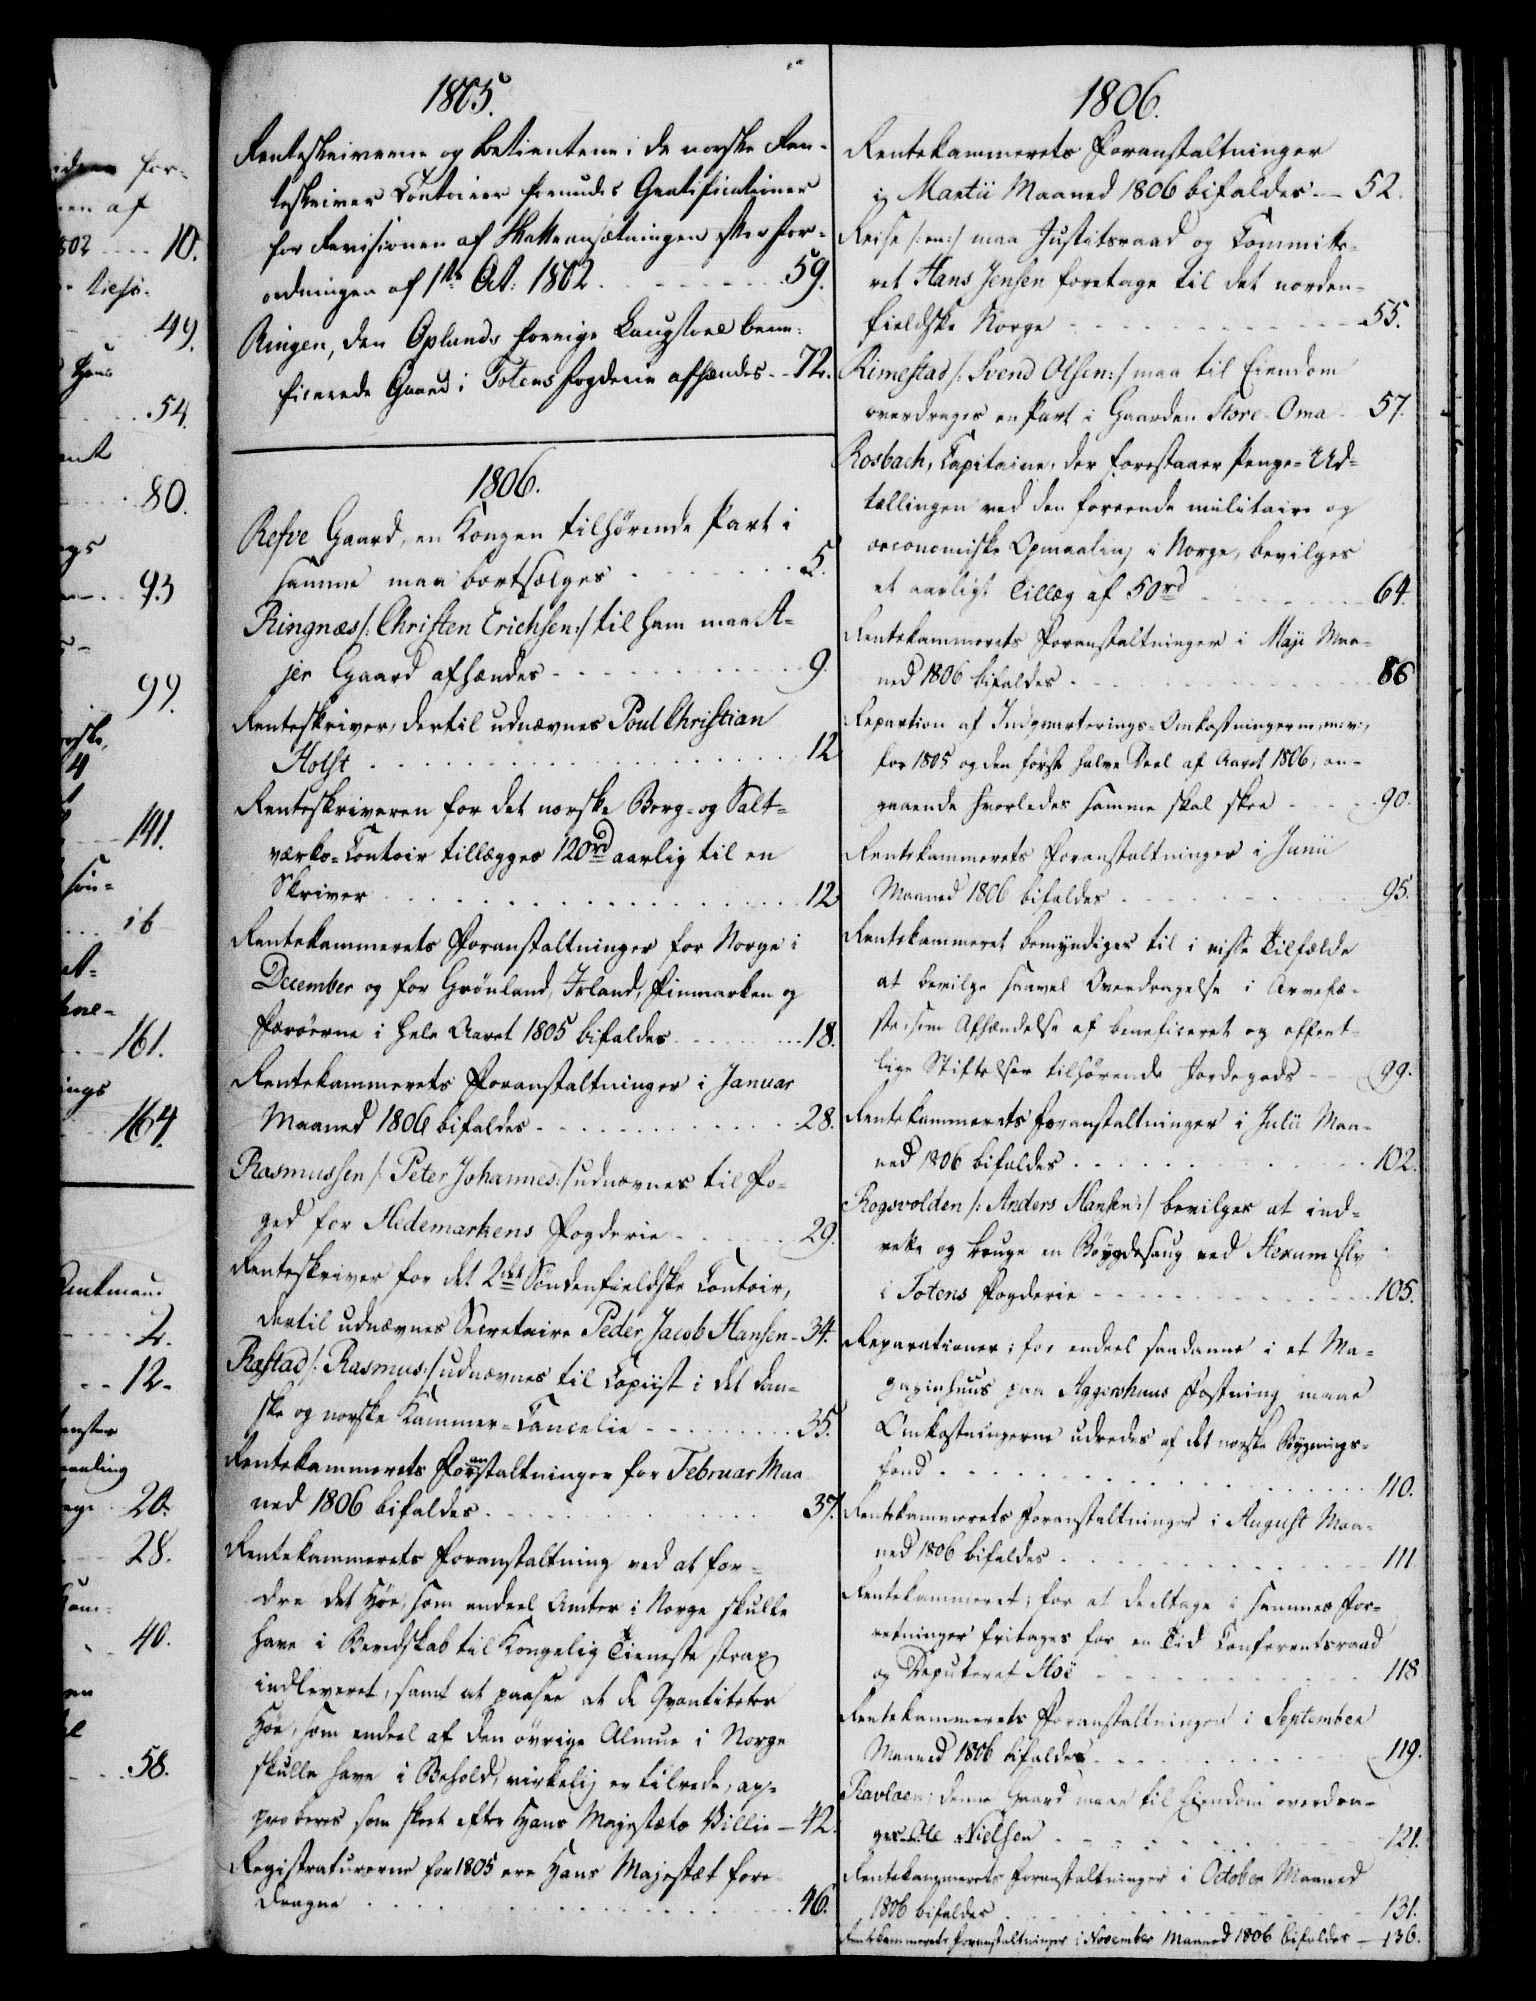 idere for-
een af
1802 10.
49.
54.
80.
93
99.
4
141.
16
161.
164.
Amtmand
2.
12.
20.
28.
40.
58.
1805.
Renteskriverne og Betientene i de norske Ren-
teskriver Contoirer forundes Gratificationer
for Revisionen af Skatteansætningen efter For-
ordningen af 1ste Oct: 1802 59.
Ringen, den Oplands forrige Laugstoel bene-
ficerede Gaard i Totens Fogderie afhændes 72.
1806.
Refve Gaard, en Kongen tilhørende Part i
samme maa bortsælges 5.
Ringnæs /: Christen Erichsen:/ til ham maa A-
jer Gaard afhændes 9.
Renteskriver, dertil udnævnes Poul Christian
Holst 12
Renteskriveren for det norske Berg- og Salt-
værks-Contoir tillægges 120rd aarlig til en
Skriver 12
Rentekammerets Foranstaltninger for Norge i
December og for Grønland, Island, Finmarken og
Færøerne i hele Aaret 1805 bifaldes 18.
Rentekammerets Foranstaltninger i Januar
Maaned 1806 bifaldes 28.
Rasmussen /: Peter Johannes:/ udnævnes til Fo-
ged for Hedemarkens Fogderie 29.
Renteskriver for det 2det Søndenfieldske Contoir,
dertil udnævnes Secretaire Peder Jacob Hansen 34.
Ræstad /: Rasmus:/ udnævnes til Copiist i det dan-
ske og norske Kammer-Cancelie 35.
Rentekammerets Foranstaltninger for Februar Maa-
ned 1806 bifaldes 37.
Rentekammerets Foranstaltning ved at for-
dre det Høe, som endeel Amter i Norge skulle
have i Beredskab til Kongelig Tieneste strax
indleveret, samt at paasee at de Qvantiteter
Høe, som endeel af den øvrige Almue i Norge
skulle have i Behold, virkelig er tilrede, ap-
proberes som skeet efter Hans Majestæts Villie 42.
Registraturerne for 1805 ere Hans Majestæt fore-
dragne 46.
1806.
Rentekammerets Foranstaltninger
i Martii Maaned 1806 bifaldes 52.
Reise /: en:/ maa Justitsraad og Committe-
ret Hans Jensen foretage til det norden-
fieldske Norge 55.
Rimestad /: Svend Olsen:/ maa til Eiendom
overdrages en Part i Gaarden Store-Oma 57.
Rosbach, Capitaine, der forestaaer Penge-Ud-
tællingen ved den foreende militaire og
oeconomiske Opmaaling i Norge, bevilges
et aarligt Tillæg af 50rd 64.
Rentekammerets Foranstaltninger i Maji Maa-
ned 1806 bifaldes 86
Repartion af Indqvarterings-Omkostningerne m: v:,
for 1805 og den første halve Deel af Aaret 1806, an-
gaaende hvorledes samme skal skee 90.
Rentekammerets Foranstaltninger i Junii
Maaned 1806 bifaldes 95.
Rentekammeret bemyndiges til i visse Tilfælde
at bevilge saavel Overdragelse i Arvefæ-
ste, som Afhændelse af beneficeret og offent-
lige Stiftelser tilhørende Jordegods 99.
Rentekammerets Foranstaltninger i Julii Maa-
ned 1806 bifaldes 102.
Rogsvolden /: Anders Hansen:/ bevilges at ind-
rette og bruge en Bøygdesaug ved Hexum Elv
i Totens Fogderie 105.
Reparationer; for endeel saadanne i et Ma-
gazinhuus paa Aggershuus Fæstning maae
Omkostningerne udredes af det norske Bygnings-
fond 110.
Rentekammerets Foranstaltninger i August Maa-
ned 1806 bifaldes 111
Rentekammeret; for at deeltage i sammes For-
retninger fritages for en Tid Conferentsraad
og Deputeret Hoë 118
Rentekammerets Foranstaltninger i September
Maaned 1806 bifaldes 119.
Ravloen; denne Gaard maae til Eiendom overdra-
ges Ole Nielsen 121.
Rentekammerets Foranstaltninger i October Maaned
1806 bifaldes 131.
Rentekammerets Foranstaltninger i November Maaned 1806 bifaldes 136.